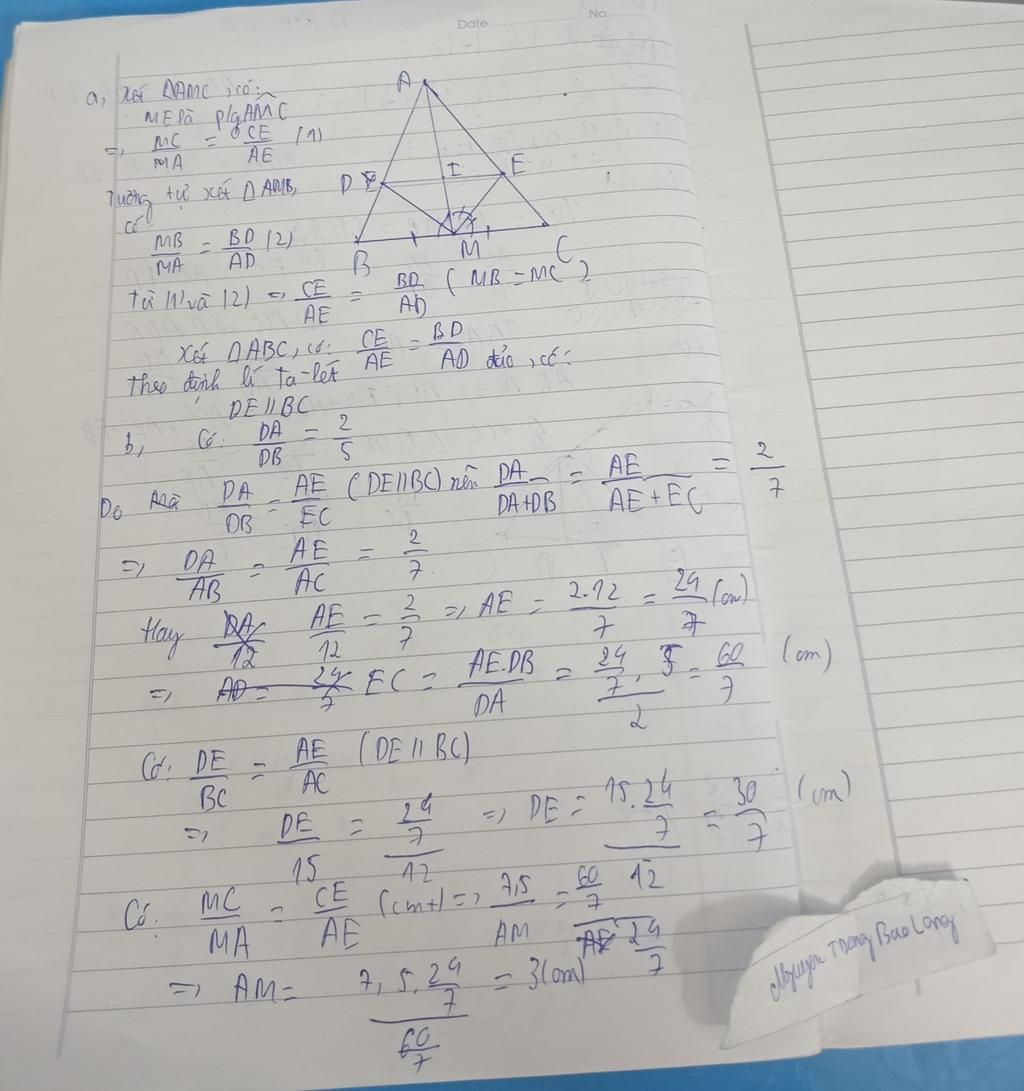 Date: No
a, Xét ΔAMC, có:
ME là p/g AMC
=> MC/MA = CE/AE (1)
Tương tự xét ΔAMB,
có
MB/MA = BD/AD (2)
Từ (1) và (2) => CE/AE = BD/AD (MB = MC)
Xét ΔABC, có: CE/AE = BD/AD
Theo định lí Ta-lét đảo, có:
DE // BC
A
D
I
E
B
M
C
b, Có: DA/DB = 2/5
Do mà DA/DB = AE/EC (DE//BC) nên DA/DA+DB = AE/AE+EC = 2/7
=> DA/AB = AE/AC = 2/7
Hay AE/12 = 2/7 => AE = 2.12/7 = 24/7 (cm)
=> EC = AE.DB/DA = 24/7 . 5/2 = 60/7 (cm)
Có: DE/BC = AE/AC (DE // BC)
=> DE/15 = 24/7/12 => DE = 15.24/7/12 = 30/7 (cm)
Có: MC/MA = CE/AE (cmt) => 7,5/AM = 60/7/24/7
=> AM = 7,5.24/7/60/7 = 3 (cm)